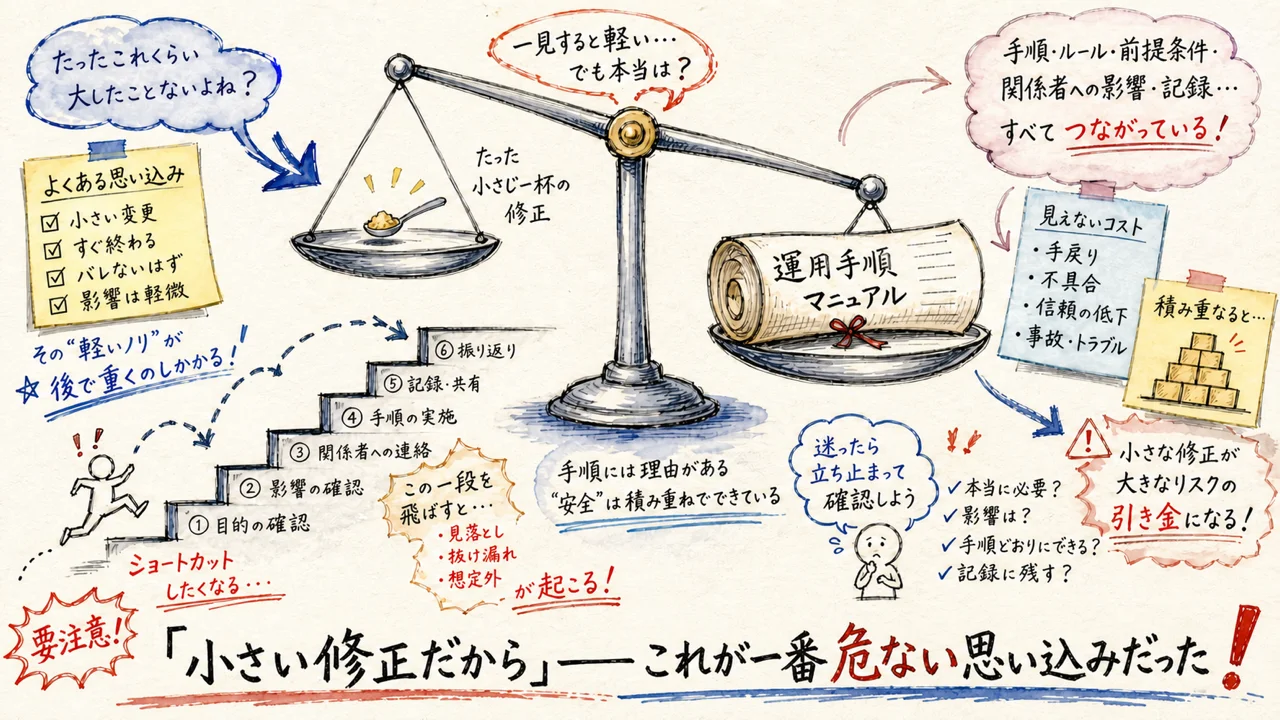 たったこれくらい
大したことないよね？
よくある思い込み
小さい変更
すぐ終わる
バレないはず
影響は軽微
その“軽いノリ”が
☆後で重くのしかかる！
一見すると軽い…
でも本当は？
たった
小さじ一杯の
修正
運用手順
マニュアル
手順・ルール・前提条件・
関係者への影響・記録…
すべてつながっている！
見えないコスト
・手戻り
・不具合
・信頼の低下
・事故・トラブル
積み重なると…
⑥ 振り返り
⑤ 記録・共有
④ 手順の実施
③ 関係者への連絡
② 影響の確認
① 目的の確認
!!
ショートカット
したくなる…
この一段を
飛ばすと…
・見落とし
・抜け漏れ
・想定外
が起こる！
手順には理由がある
“安全”は積み重ねでできている
迷ったら
立ち止まって
確認しよう
✓本当に必要？
✓影響は？
✓手順どおりにできる？
✓記録に残す？
!
小さな修正が
大きなリスクの
引き金になる！
要注意！
「小さい修正だから」――これが一番危ない思い込みだった！